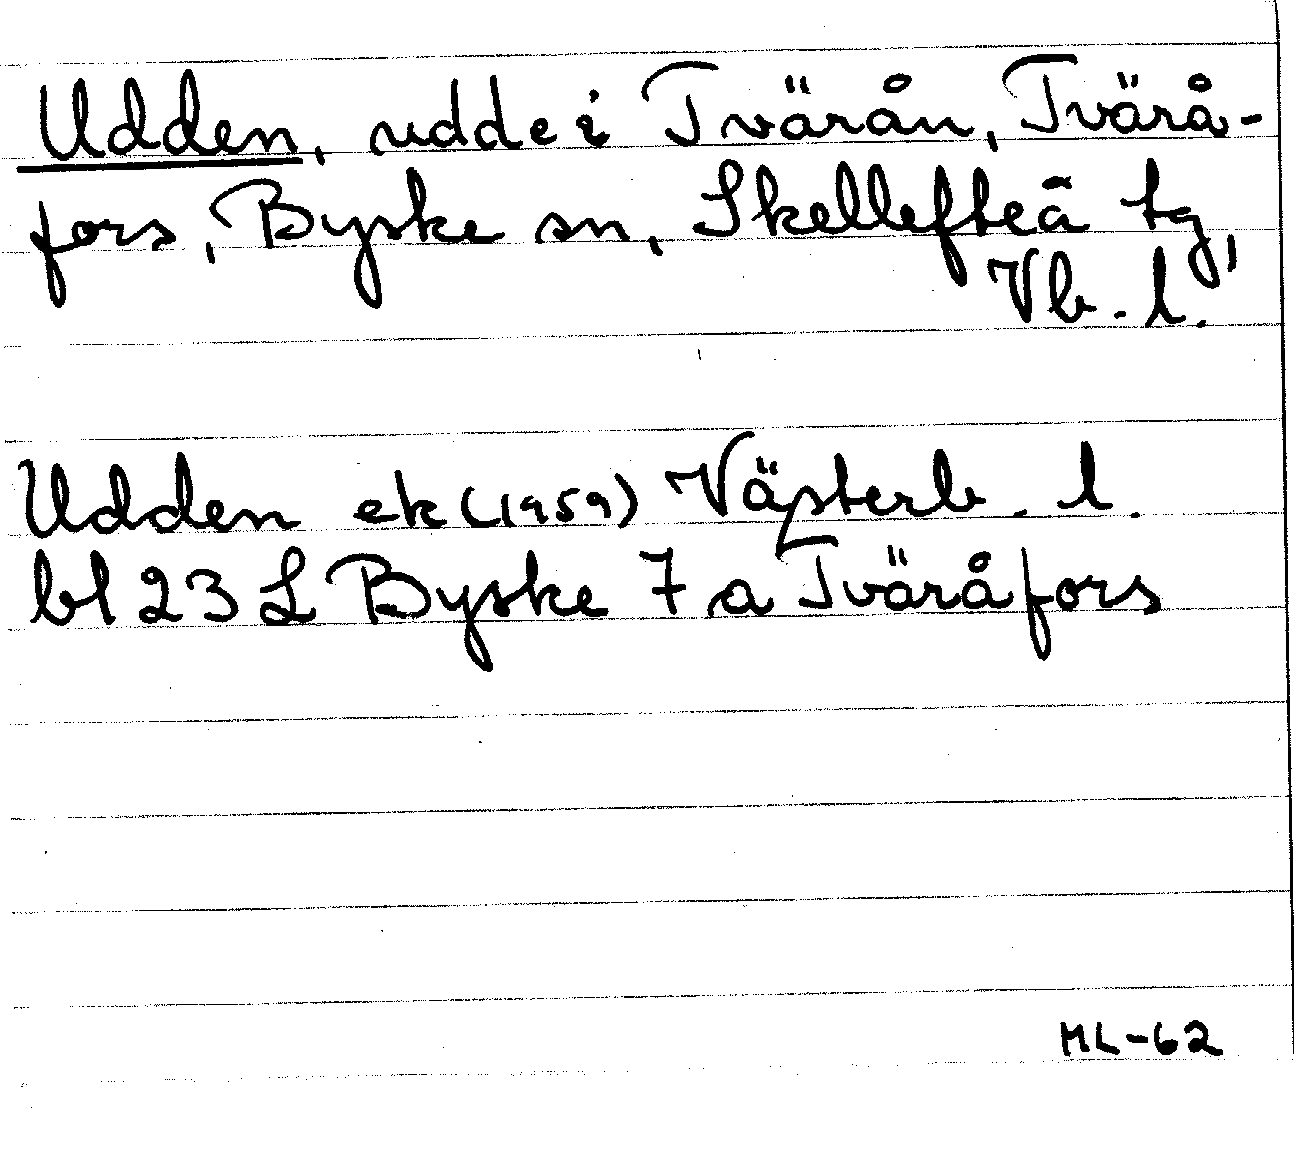 Udden, udde i Tvärån, Tvärå-
fors, Byske sn, Skellefteå tg,
Vb. l.
Udden ek (1959) Västerb. l.
bl 23 L Byske 7 a Tväråfors
ML-62